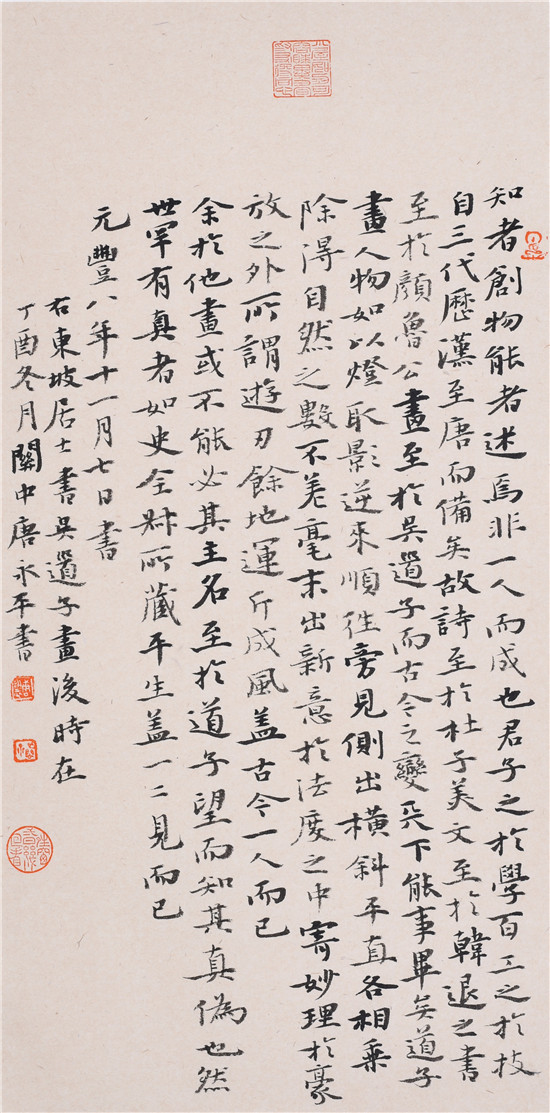 知者創物能者述焉非一人而成也君子之於學百工之於技
自三代歷漢至唐而備矣故詩至於杜子美文至於韓退之書
至於顏魯公畫至於吳道子而古今之變天下能事畢矣道子
畫人物如以燈取影逆來順往旁見側出橫斜平直各相乘
除得自然之數不差毫末出新意於法度之中寄妙理於豪
放之外所謂遊刃餘地運斤成風盖古今一人而已
余於他畫或不能必其主名至於道子望而知其真偽也然
世罕有真者如史全叔所藏平生盖一二見而已
元豐八年十一月七日書
右東坡居士書吳道子畫後時在
丁酉冬月關中唐永平書